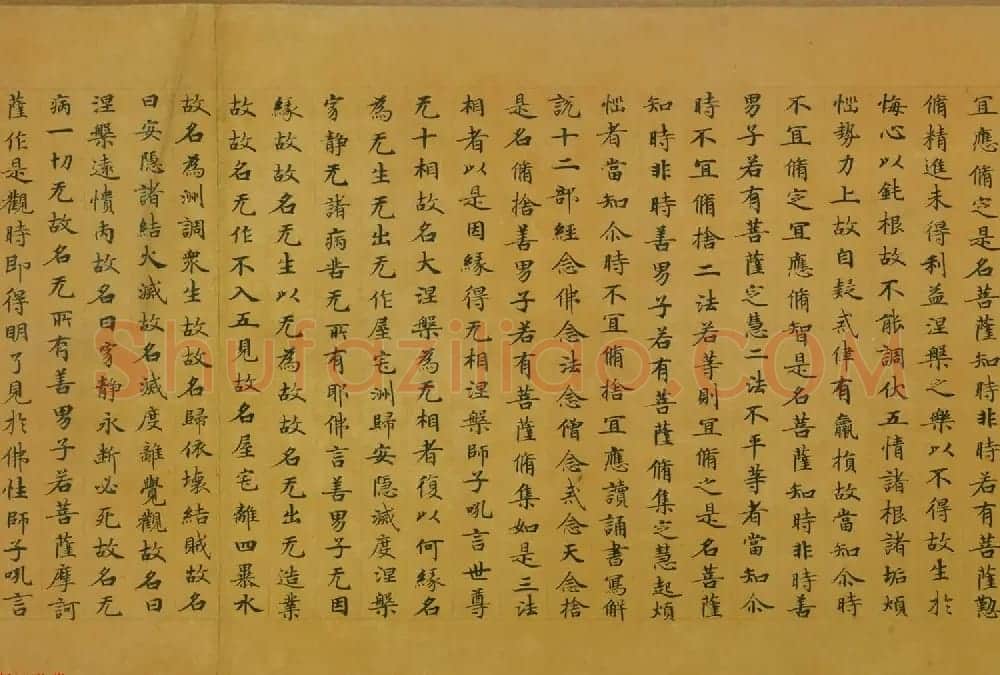 宜應脩定是名菩薩知時非時若有菩薩懃
脩精進未得利益涅槃之樂以不得故生於
悔心以鈍根故不能調伏五情諸根諸垢煩
惱勢力上故自疑戒律有羸損故當知尒時
不宜脩定宜應脩智是名菩薩知時非時善
男子若有菩薩定慧二法不平等者當知尒
時不宜脩捨二法若等則宜脩之是名菩薩
知時非時善男子若有菩薩脩集定慧起煩
惱者當知尒時不宜脩捨宜應讀誦書寫解
說十二部經念佛念法念僧念戒念天念捨
是名脩捨善男子若有菩薩脩集如是三法
相者以是因緣得无相涅槃師子吼言世尊
无十相故名大涅槃為无相者復以何緣名
為无生无出无作屋宅洲歸安隱滅度涅槃
寂靜无諸病苦无所有耶佛言善男子无因
緣故故名无生以无為故故名无出无造業
故故名无作不入五見故名屋宅離四暴水
故名為洲調衆生故故名歸依壞結賊故名
曰安隱諸結火滅故名滅度離覺觀故名曰
涅槃遠憒丙故名曰寂靜永斷必死故名无
病一切无故名无所有善男子若菩薩摩訶
薩作是觀時即得明了見於佛性師子吼言
Shufaziliao.COM